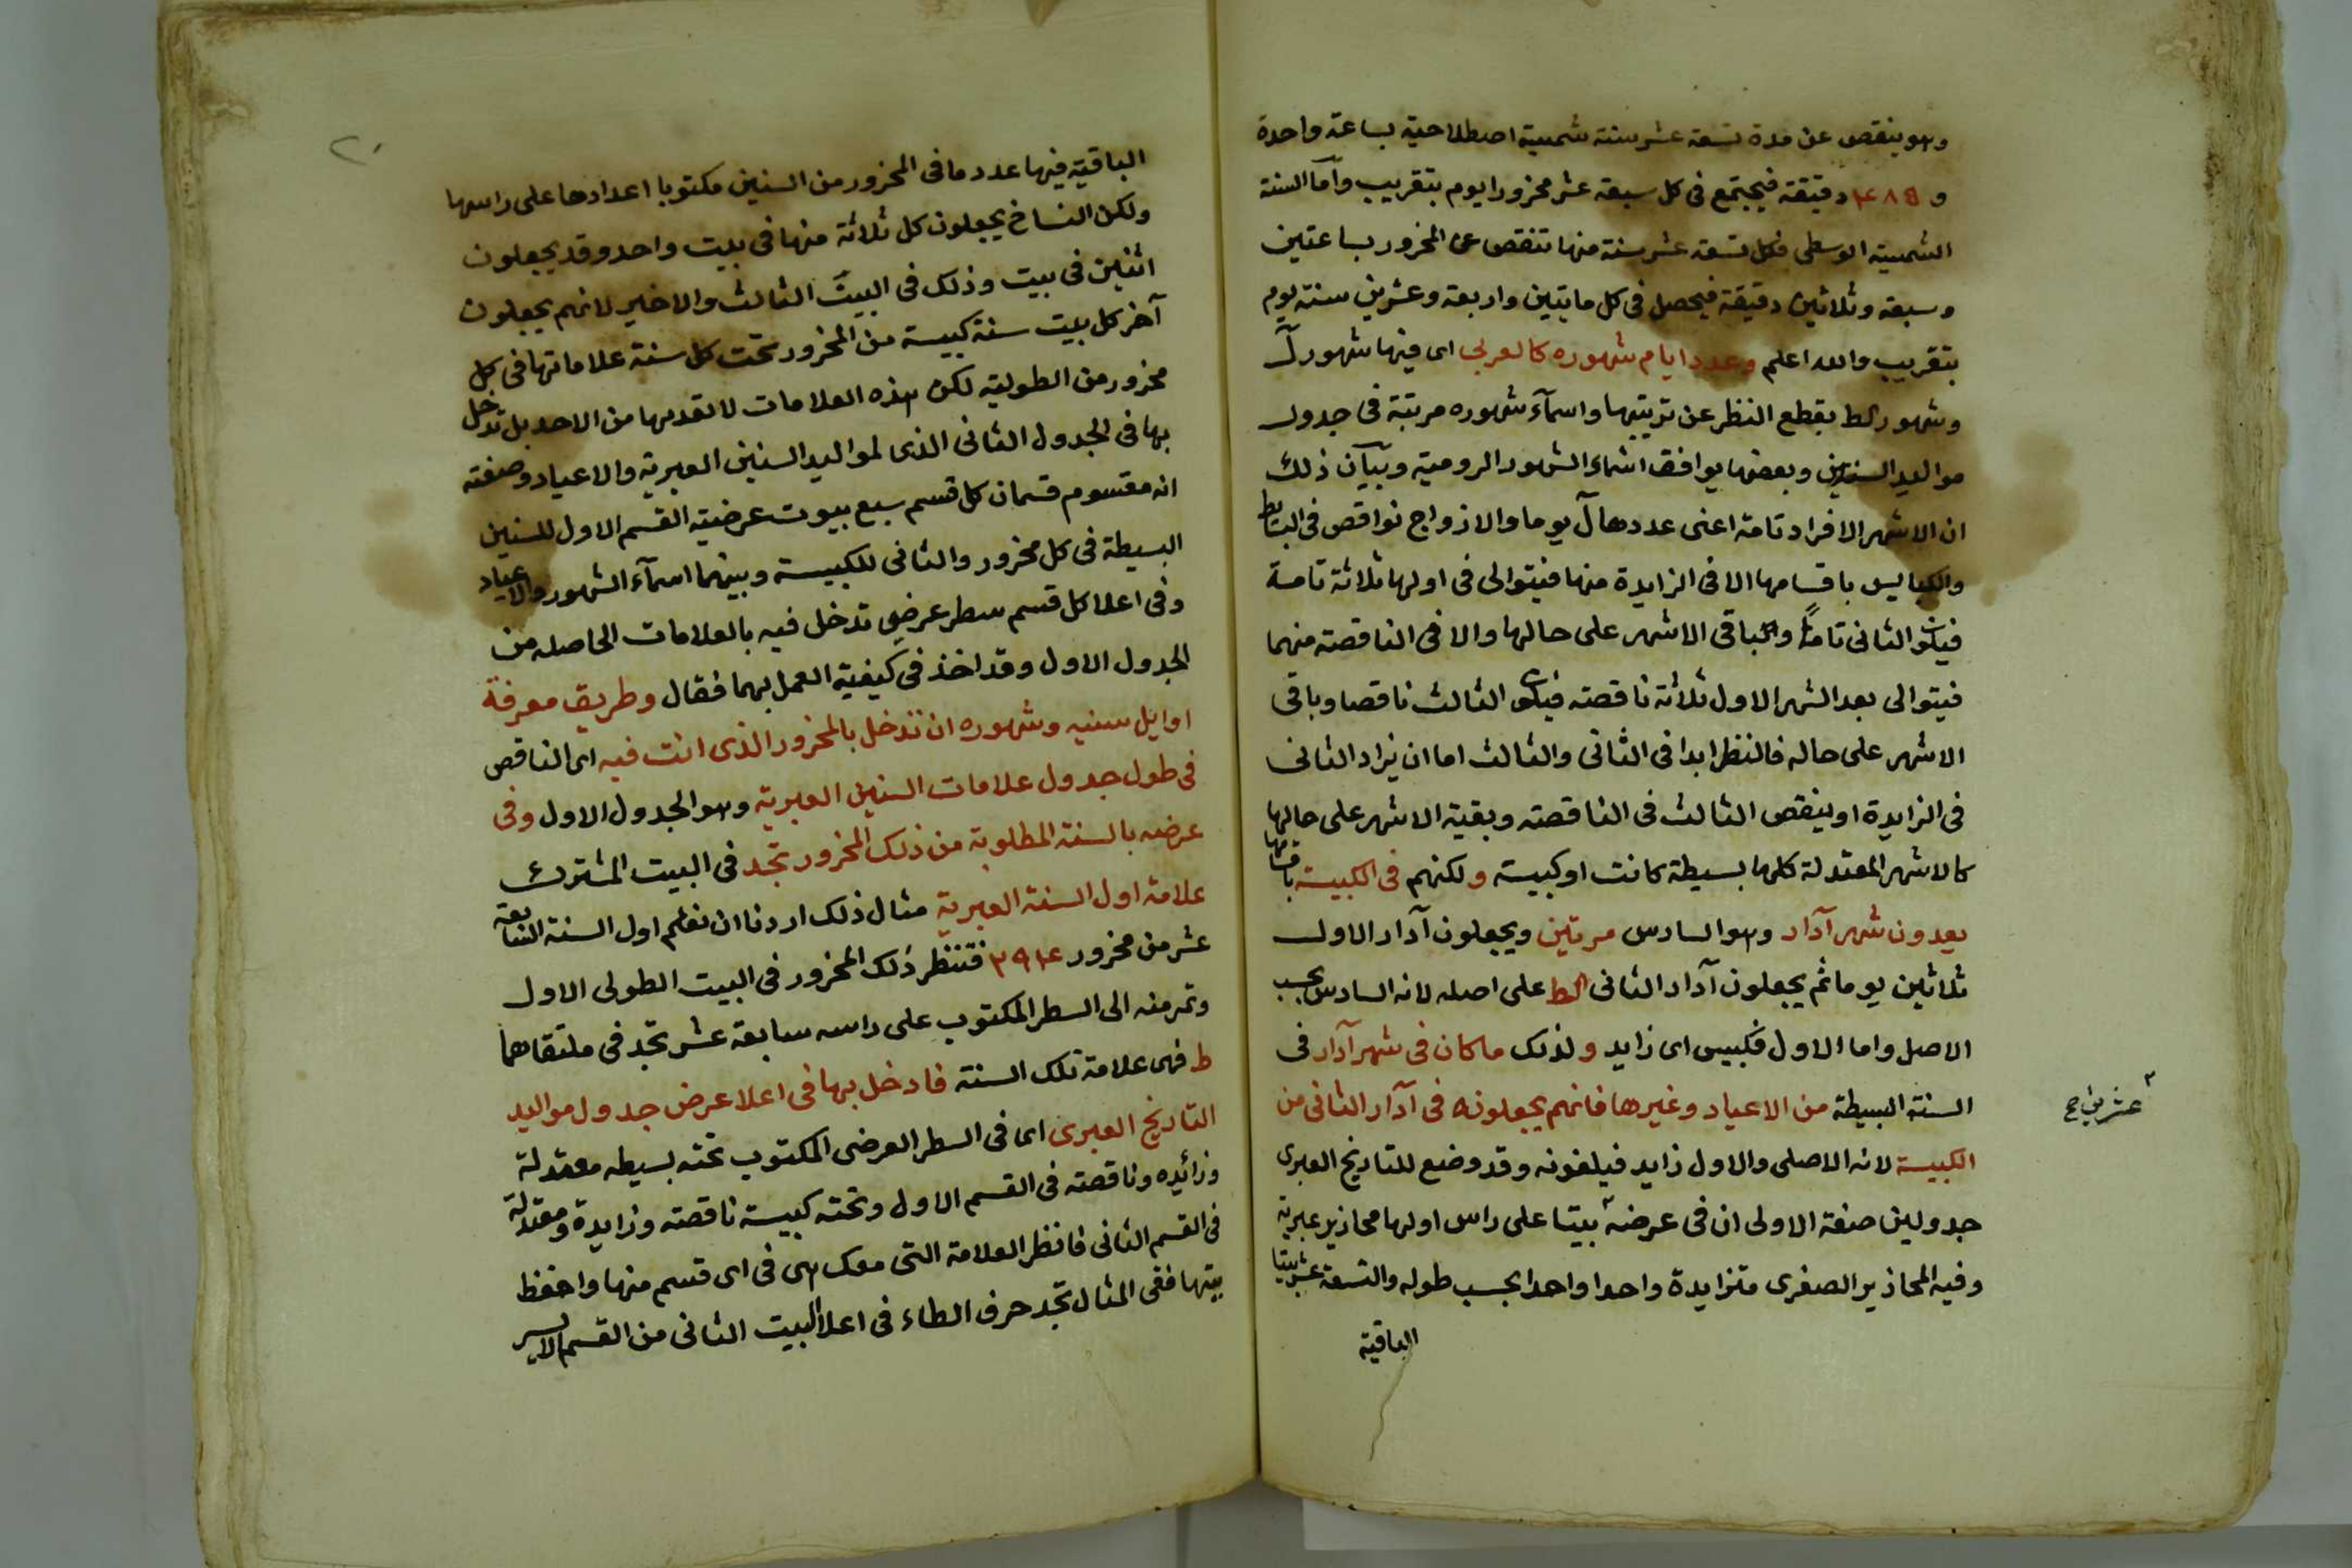 وهو ينقص عن مدة تسعة عشر سنة شمسية اصطلاحية بساعة واحدة
و دقيقة فيجتمع فى كل سبعة عشر محزورا يوم بتقريب وأما السنة
الشمسية الوسطى فكل تسعة عشر سنة منها تنقص عن المحزور بساعتين
وسبعة وثلاثين دقيقة فيحصل فى كل مايتين واربعة وعشرين سنة يوم
بتقريب والله اعلم وعدد ايام شهوره كالعربى اى فيها شهور ل
وشهور كط بقطع النظر عن ترتيبها واسمآء شهوره مرتبة فى جدول
مواليد السنين وبعضها يوافق اسماء الشهور الرومية وبيآن ذلك
ان الاشهر الافراد تامة اعنى عددها ل يوما والازواج نواقص فى البسايط
والكبايس باقسامها الا فى الزايدة منها فيتوالى فى اولها ثلاثة تامة
فيكون الثانى تامًا والباقى الاشهر على حالها والا فى الناقصة منهما
فيتوالى بعد الشهر الاول ثلاثة ناقصة فيكون الثالث ناقصا وباقى
الاشهر على حاله فالنظر ابدا فى الثانى والثالث اما ان يزاد الثانى
فى الزايدة او ينقص الثالث فى الناقصة وبقية الاشهر على حالها
كالاشهر المعتدلة كلها بسيطة كانت او كبيسة ولكنهم فى الكبيسة باقسامها
يعدون شهر آدار وهو السادس مرتين ويجعلون آدار الاول
ثلاثين يوما ثم يجعلون آدار الثانى كط على اصله لانه السادس بحسب
الاصل واما الاول فكبيس اى زايد ولذلك ما كان فى شهر آدار فى
السنة البسيطة من الاعياد وغيرها فانهم يجعلونه فى آدار الثانى من
الكبيسة لانه الاصلى والاول زايد فيلغونه وقد وضع للتاريخ العبرى
جدولين صفة الاولى ان فى عرضه بيتا على راس اولها محازير عبرية
وفيه المحازير الصغرى متزايدة واحدا واحدا بحسب طوله والتسعة عشر بيتا
الباقية
عشرين صح
٢٠
الباقية فيها عدد ما فى المحزور من السنين مكتوبا اعدادها على راسها
ولكن النساخ يجعلون كل ثلاثة منها فى بيت واحد وقد يجعلون
اثنين فى بيت وذلك فى البيت الثالث والاخير لانهم يجعلون
آخر كل بيت سنة كبيسة من المحزور تحت كل سنة علاماتها فى كل
محزور من الطولية لكن هذه العلامات لا تعد بها من الاحد بل تدخل
بها فى الجدول الثانى الذى لمواليد السنين العبرية والاعياد وصفته
انه مقسوم قسمان كل قسم سبع بيوت عرضية القسم الاول للسنين
البسيطة فى كل محزور والثانى للكبيسة وبينهما اسمآء الشهور والاعياد
وفى اعلا كل قسم سطر عرضى تدخل فيه بالعلامات الحاصله من
الجدول الاول وقد اخذ فى كيفية العمل بهما فقال وطريق معرفة
اوايل سنيه وشهوره ان تدخل بالمحزور الذى انت فيه اى الناقص
فى طول جدول علامات السنين العبرية وهو الجدول الاول وفى
عرضه بالسنة المطلوبة من ذلك المحزور تجد فى البيت المشترك
علامة اول السنة العبرية مثال ذلك اردنا ان نعلم اول السنة السابعة
عشر من محزور فتنظر ذلك المحزور فى البيت الطولى الاول
وتمر منه الى السطر المكتوب على راسه سابعة عشر تجد فى ملتقاهما
ط فهى علامة تلك السنة فادخل بها فى اعلا عرض جدول مواليد
التاريخ العبرى اى فى السطر العرضى المكتوب تحته بسيطه معتدلة
وزائده وناقصته فى القسم الاول وتحته كبيسة ناقصته وزايدة ومعتدلة
فى القسم الثانى فانظر العلامة التى معك هى فى اى قسم منها واحفظ
بيتها ففى المثال تجد حرف الطاء فى اعلا البيت الثانى من القسم الايسر